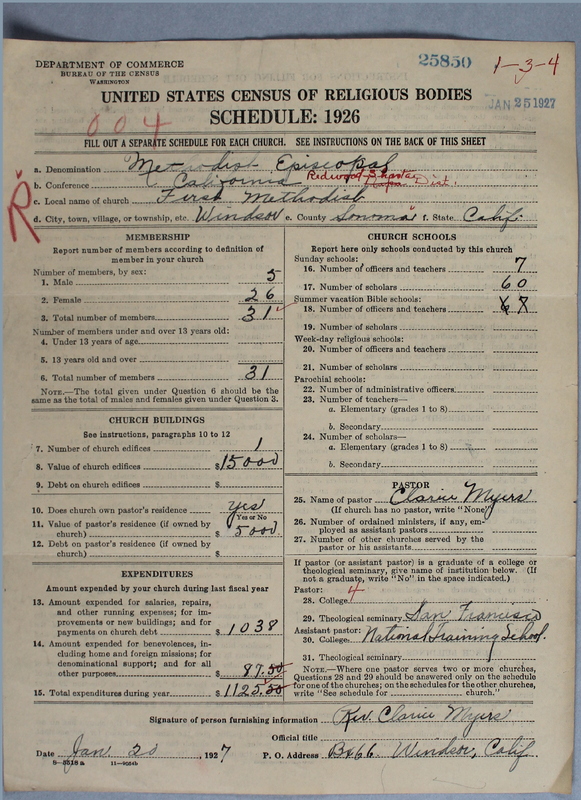 DEPARTMENT OF COMMERCE
BUREAU OF THE CENSUS
WASHINGTON
25850
1-3-4
UNITED STATES CENSUS OF RELIGIOUS BODIES
JAN 25 1927
SCHEDULE: 1926
004
FILL OUT A SEPARATE SCHEDULE FOR EACH CHURCH. SEE INSTRUCTIONS ON THE BACK OF THIS SHEET
a. Denomination Methodist Episcopal
b. Conference California Redwood-Shasta Napa Dist.
c. Local name of church First Methodist
R
d. City, town, village, or township, etc. Windsor e. County Sonoma f. State Calif.
MEMBERSHIP
Report number of members according to definition of
member in your church
Number of members, by sex:
1. Male 5
2. Female 26
3. Total number of members 31
Number of members under and over 13 years old:
4. Under 13 years of age
5. 13 years old and over
6. Total number of members 31
NOTE.—The total given under Question 6 should be the
same as the total of males and females given under Question 3.
CHURCH BUILDINGS
See instructions, paragraphs 10 to 12
7. Number of church edifices 1
8. Value of church edifices $15000
9. Debt on church edifices $
10. Does church own pastor's residence? yes
Yes or No
11. Value of pastor's residence (if owned by
church) $ 5000
12. Debt on pastor's residence (if owned by
church) $
EXPENDITURES
Amount expended by your church during last fiscal year
13. Amount expended for salaries, repairs,
and other running expenses; for im-
provements or new buildings; and for
payments on church debt $ 1038
14. Amount expended for benevolences, in-
cluding home and foreign missions; for
denominational support; and for all
other purposes $ 87.50
15. Total expenditures during year $ 1125.50
CHURCH SCHOOLS
Report here only schools conducted by this church
Sunday schools:
16. Number of officers and teachers 7
17. Number of scholars 60
Summer vacation Bible schools:
18. Number of officers and teachers 67
19. Number of scholars
Week-day religious schools:
20. Number of officers and teachers
21. Number of scholars
Parochial schools:
22. Number of administrative officers
23. Number of teachers—
a. Elementary (grades 1 to 8)
b. Secondary
24. Number of scholars—
a. Elementary (grades 1 to 8)
b. Secondary
PASTOR
25. Name of pastor Clarice Myers
(If church has no pastor, write "None")
26. Number of ordained ministers, if any, em-
ployed as assistant pastors
27. Number of other churches served by the
pastor or his assistants
If pastor (or assistant pastor) is a graduate of a college or
theological seminary, give name of institution below. (If
not a graduate, write "No" in the space indicated.)
Pastor: 4
28. College
29. Theological seminary San Francisco
Assistant pastor:
30. College National Training School.
31. Theological seminary
NOTE.—Where one pastor serves two or more churches,
Questions 28 and 29 should be answered only on the schedule
for one of the churches; on the schedules for the other churches,
write "See schedule for church."
Signature of person furnishing information Rev. Clarice Myers
Official title
Date Jan. 20, 1927 P. O. Address Bx 66 Windsor, Calif
8-5518a 11-9054b